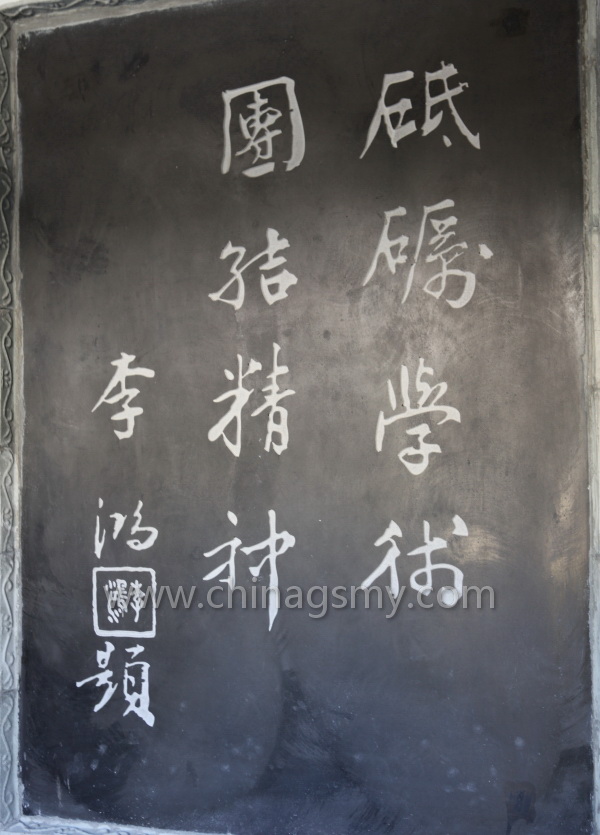 砥礪學術
團結精神
李鴻題
李鴻
www.chinagsmy.com